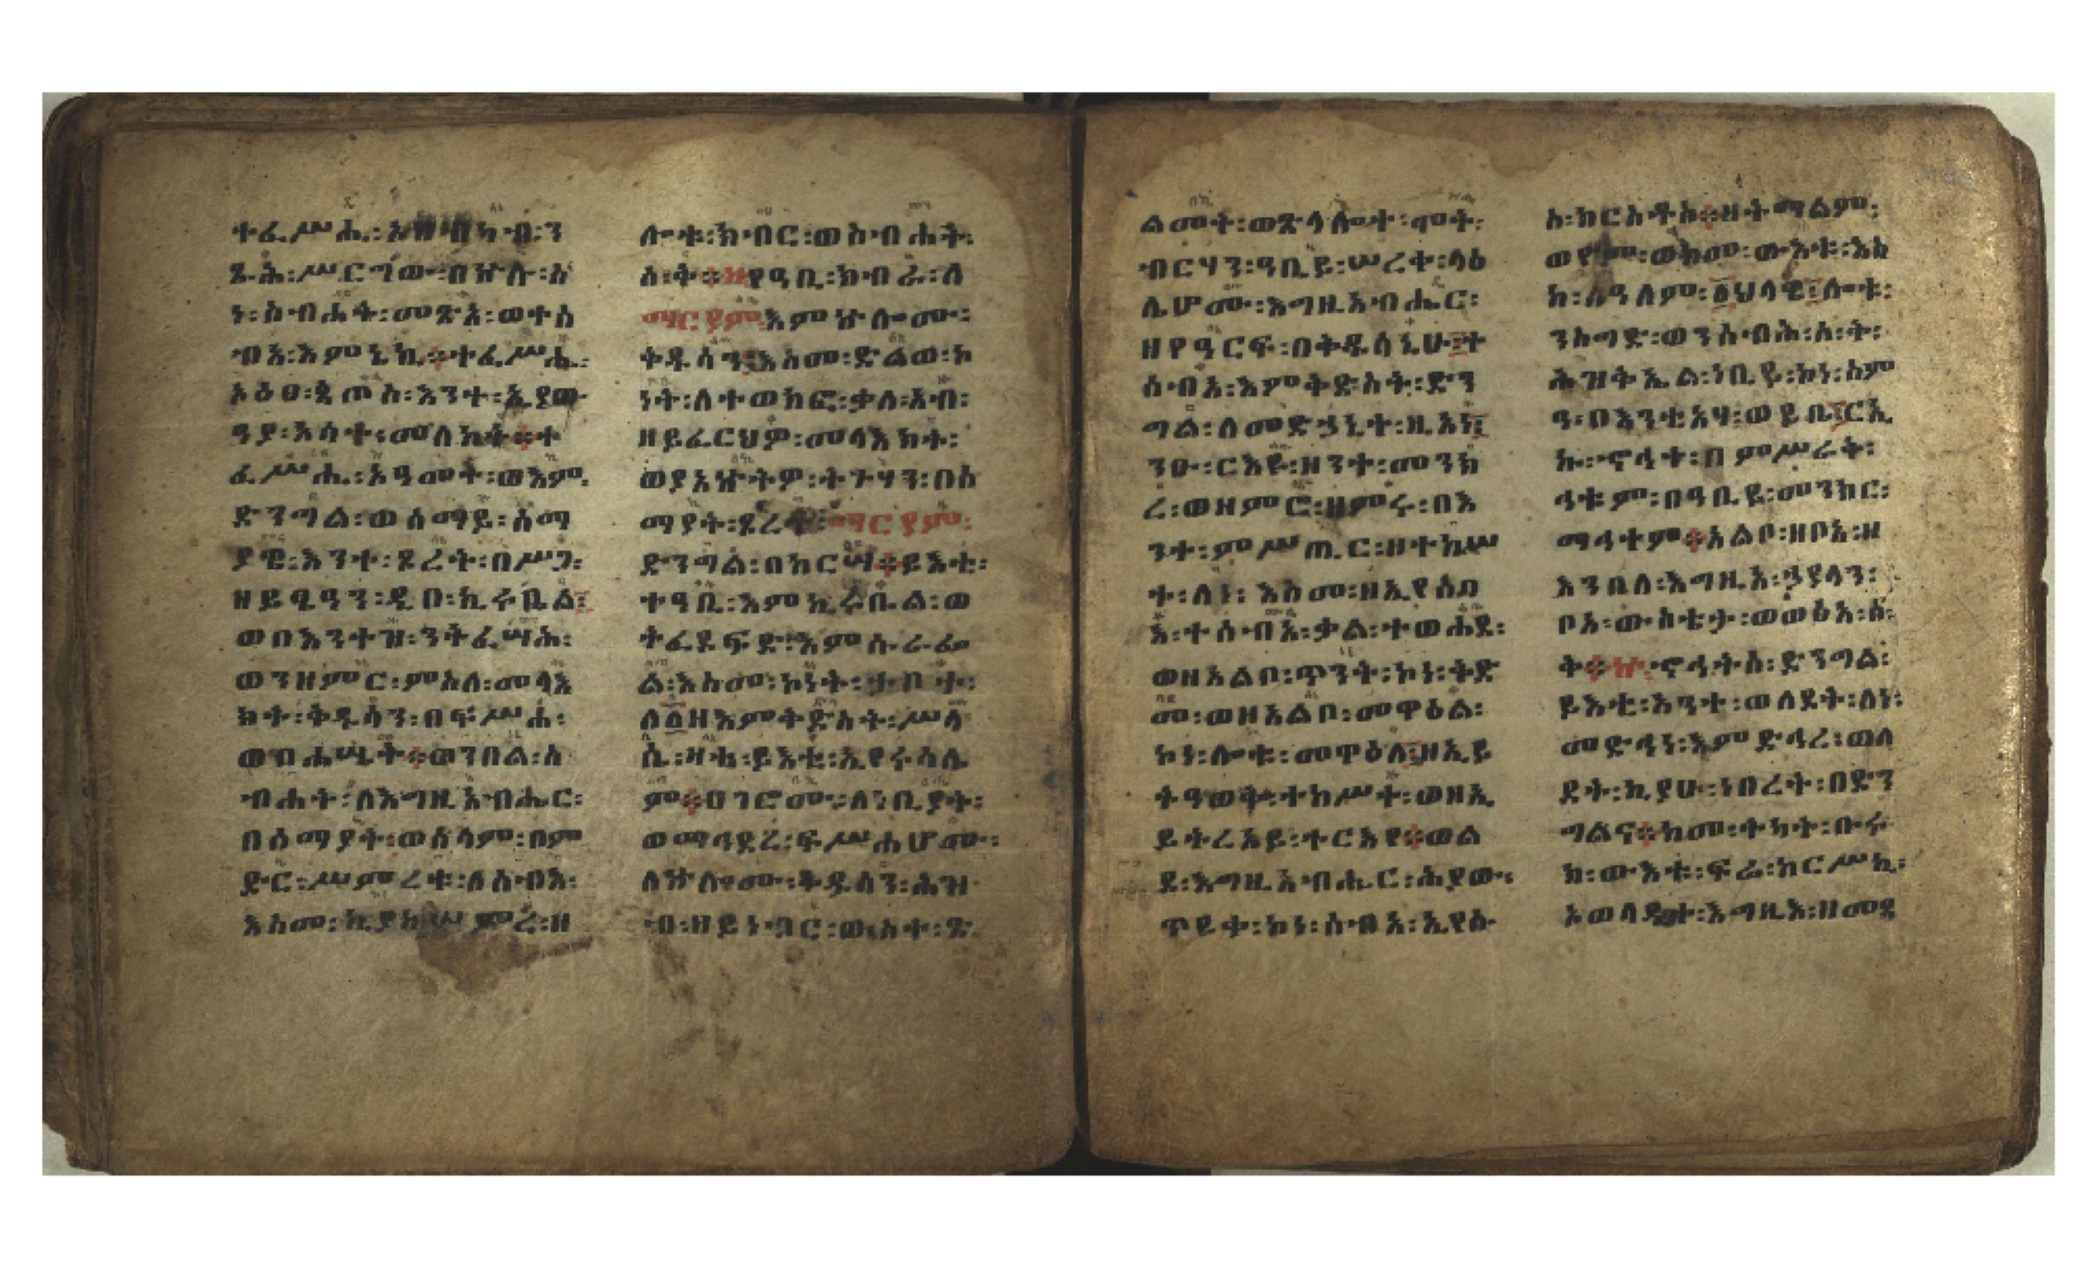 ተፈሥሒ፡ኦ ን
ጹሕ፡ሥርግው፡በኵሉ፡ስ
ነ፡ስብሐት፡መጽአ፡ወተሰ
ብአ፡እምኔኪ፨ተፈሥሒ፡
ኦዕፀ፡ጳጦስ፡እንተ፡ኢያው
ዓያ፡እሳተ፡መለኮት፨ተ
ፈሥሒ፡ኦዓመት፡ወእም፡
ድንግል፡ወሰማይ፡ሰማ
ያዊ፡እንተ፡ጾረት፡በሥጋ፡
ዘይፄዓን፡ዲበ፡ኪሩቤል፤
ወበእንተዝ፡ንትፈሣሕ፡
ወንዘምር፡ምስለ፡መላእ
ክት፡ቅዱሳን፡በፍሥሐ፡
ወበሐሤት፨ወንበል፡ስ
ብሐት፡ለእግዚአብሔር፡
በሰማያት፡ወሰላም፡በም
ድር፡ሥምረቱ፡ለሰብእ፡
እስመ፡ኪያኪ፡ሠምረ፡ዘ
ሎቱ፡ክብር፡ወስብሐት፡
ሰ፡ቅ፨ዘየዓቢ፡ክብራ፡ለ
ማርያም፡እምኵሎሙ፡
ቅዱሳን፡እስመ፡ድልወ፡ኮ
ነት፡ለተወክፎ፡ቃለ፡አብ፡
ዘይፈርህዎ፡መላእክት፡
ወያአኵትዎ፡ትጉሃን፡በሰ
ማያት፡ጾረቶ፡ማርያም፡
ድንግል፡በከርሣ፨ይእቲ፡
ተዓቢ፡እምኪሩቤል፡ወ
ትፈደፍድ፡እምሱራፌ
ል፡እስመ፡ኮነት፡ታቦተ፡
ለ፩ዘእምቅድስት፡ሥላ
ሴ፡ዛቲ፡ይእቲ፡ኢየሩሳሌ
ም፨ሀገሮሙ፡ለነቢያት፡
ወማኅደረ፡ፍሥሐሆሙ፡
ለኵሎሙ፡ቅዱሳን፡ሕዝ
ብ፡ዘይነብር፡ውስተ፡ጽ
ልመት፡ወጽላሎተ፡ሞት፡
ብርሃን፡ዓቢይ፡ሠረቀ፡ላዕ
ሌሆሙ፡እግዚአብሔር፡
ዘየዓርፍ፡በቅዱሳኒሁ፤ተ
ሰብአ፡እምቅድስት፡ድን
ግል፡ለመድኃኒተ፡ዚአነ፤
ንዑ፡ርእዩ፡ዘንተ፡መንክ
ረ፡ወዘምሮ፡ዘምሩ፡በእ
ንተ፡ምሥጢር፡ዘተከሥ
ተ፡ለነ፡እስመ፡ዘኢየሰብ
እ፡ተሰብአ፡ቃል፡ተወሐደ፡
ወዘአልቦ፡ጥንት፡ኮነ፡ቅድ
መ፡ወዘአልቦ፡መዋዕል፡
ኮነ፡ሎቱ፡መዋዕለ፤ዘኢይ
ትዓወቅ፡ተከሥተ፡ወዘኢ
ይትረአይ፡ተርእየ፨ወል
ደ፡እግዚአብሔር፡ሕያው፡
ጥዩቀ፡ኮነ፡ሰብአ፡ኢየሱ
ስ፡ክርስቶስ፨ዘትማልም፡
ወዮም፡ወክመ፡ውእቱ፡እስ
ከ፡ለዓለም፡፩ህላዌ፤ሎቱ፡
ንስግድ፡ወንሰብሕ፡ሰ፡ት፡
ሕዝቅኤል፡ነቢይ፡ኮነ፡ስም
ዓ፡በእንቲአሃ፡ወይቤ፤ርኢ
ኩ፡ኆኅተ፡በምሥራቅ፡
ኅቱም፡በዓቢይ፡መንክር፡
ማኅተም፨አልቦ፡ዘቦአ፡ዘ
እንበለ፡እግዚአ፡ኃያላን፡
ቦአ፡ውስቴታ፡ወወፅአ፡ሰ፡
ቅ፨ ኆኅትሰ፡ድንግል፡
ይእቲ፡እንተ፡ወለደት፡ለነ፡
መድኅነ፡እምድኅረ፡ወለ
ደት፡ኪያሁ፡ነበረት፡በድን
ግልና፨ከመ፡ትካት፡ቡሩ
ክ፡ውእቱ፡ፍሬ፡ከርሥኪ፡
ኦወላዲተ፡እግዚእ፡ዘመጽ